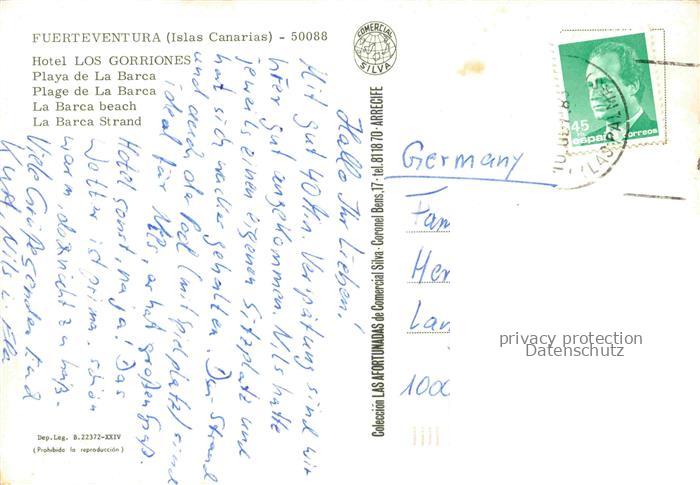 FUERTEVENTURA (Islas Canarias) - 50088
Hotel LOS GORRIONES
Playa de La Barca
Plage de La Barca
La Barca beach
La Barca Strand
Hallo Ihr Lieben!
Mit gut 40 Min. Verspätung sind wir
hier gut angekommen. Nils hatte
jeweils einen eigenen Sitzplatz und
hat sich wacker gehalten. Der Strand
und auch der Pool (mit Spielplatz) sind
ideal für Nils, er hat großen Spaß.
Hotel sonst, naja! Das
Wetter ist prima, schön
warm, doch nicht zu heiß.
Viele Grüße senden Euch
Kurt, Nils u.
Dep. Leg. B. 22372-XXIV
(Prohibida la reproducción)
COMERCIAL SILVA
Colección LAS AFORTUNADAS de Comercial Silva · Coronel Bens, 17 · tel. 81 18 70 · ARRECIFE
45
España
correos
(LAS PALMAS)
Germany
Fam
Her
Lan
1000
privacy protection
Datenschutz